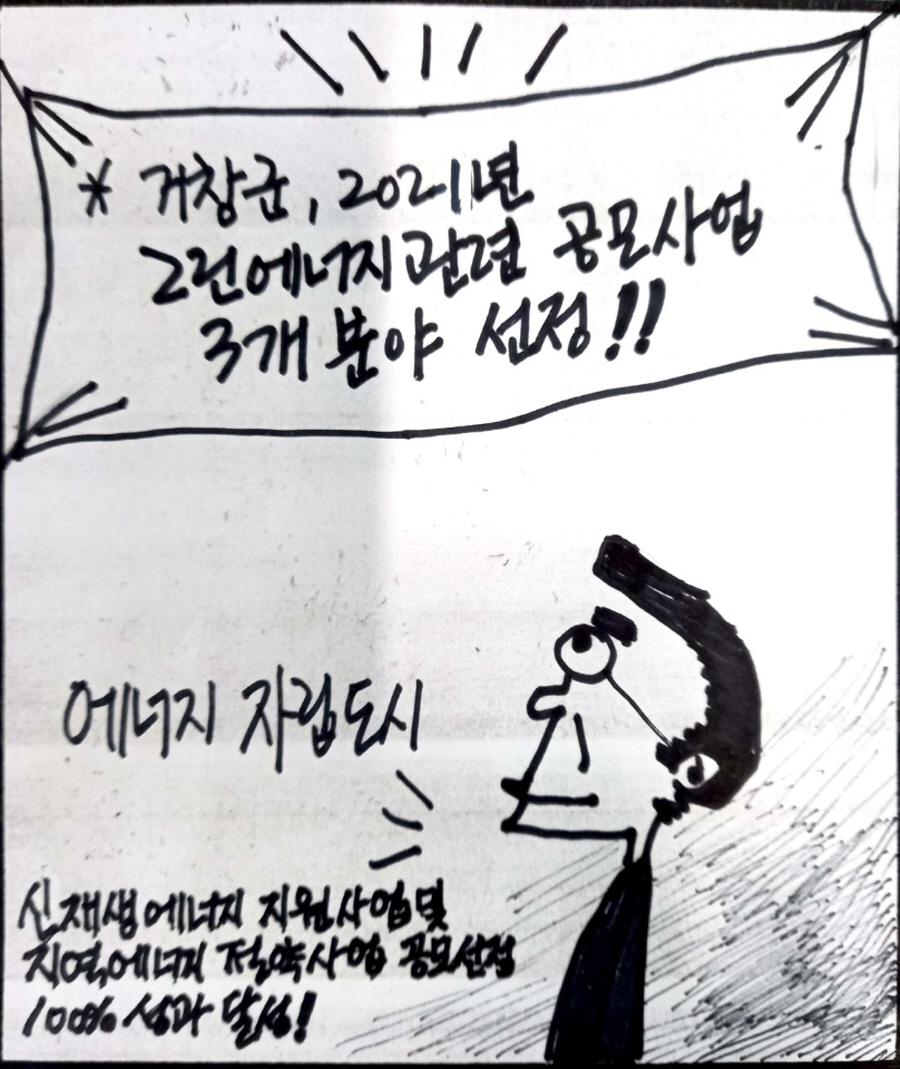 * 거창군, 2021년
그린에너지 관련 공모사업
3개 분야 선정!!
에너지 자립도시
신재생에너지 지원사업 및
지역에너지 절약사업 공모선정
100% 성과 달성!